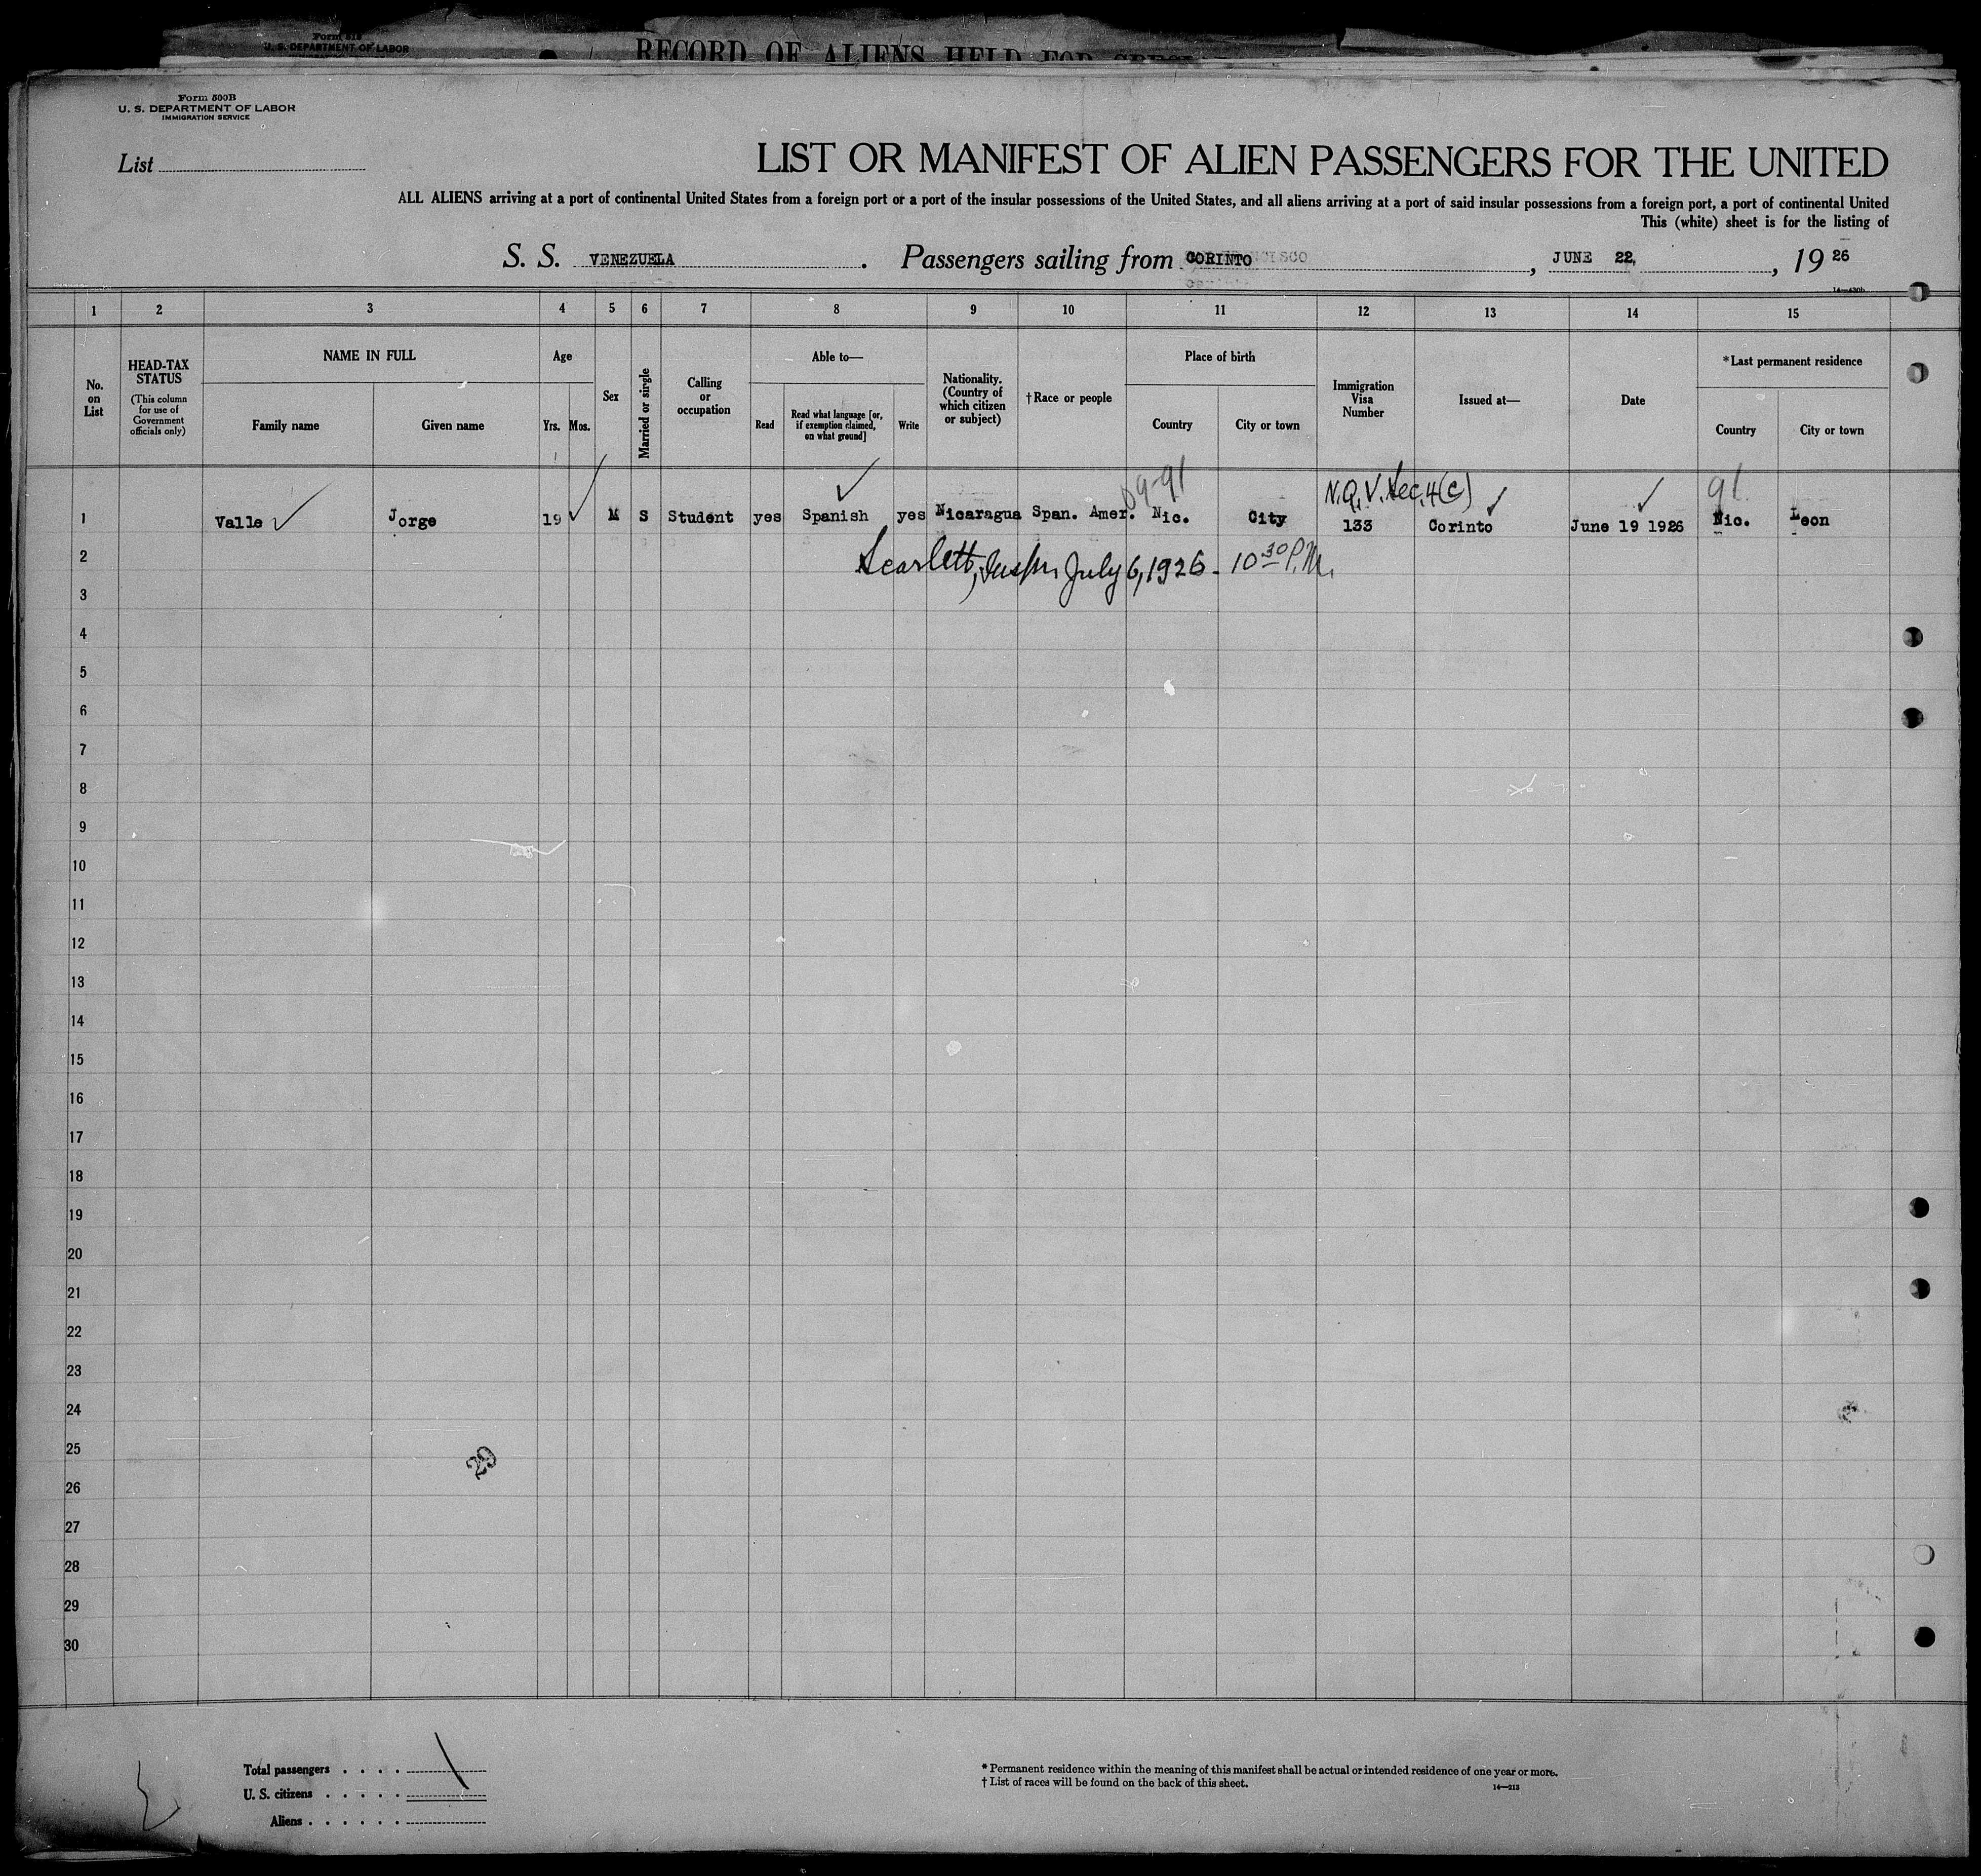 Form 518
U. S. DEPARTMENT OF LABOR
RECORD OF ALIENS HELD FOR SPECI
Form 500B
U. S. DEPARTMENT OF LABOR
IMMIGRATION SERVICE
List
LIST OR MANIFEST OF ALIEN PASSENGERS FOR THE UNITED
ALL ALIENS arriving at a port of continental United States from a foreign port or a port of the insular possessions of the United States, and all aliens arriving at a port of said insular possessions from a foreign port, a port of continental United
This (white) sheet is for the listing of
S. S. VENEZUELA . Passengers sailing from CORINTO , JUNE 22, , 19 26
1 2 3 4 5 6 7 8 9 10 11 12 13 14 15
No. on List
HEAD-TAX STATUS
(This column for use of Government officials only)
NAME IN FULL
Family name Given name
Age
Yrs. Mos.
Sex
Married or single
Calling or occupation
Able to—
Read
Read what language [or, if exemption claimed, on what ground]
Write
Nationality. (Country of which citizen or subject)
†Race or people
Place of birth
Country City or town
Immigration Visa Number
Issued at—
Date
*Last permanent residence
Country City or town
N.Q.V. Sec. 4(c) 91
1 Valle Jorge 19 M S Student yes Spanish yes Nicaragua Span. Amer. Nic. City 133 Corinto June 19 1926 Nic. Leon
2 Scarlett, July 6, 1926 - 10 30 P.M.
3
4
5
6
7
8
9
10
11
12
13
14
15
16
17
18
19
20
21
22
23
24
25
29
26
27
28
29
30
Total passengers . . . .
U. S. citizens . . . . .
Aliens . . . . . .
* Permanent residence within the meaning of this manifest shall be actual or intended residence of one year or more.
† List of races will be found on the back of this sheet.
14—213